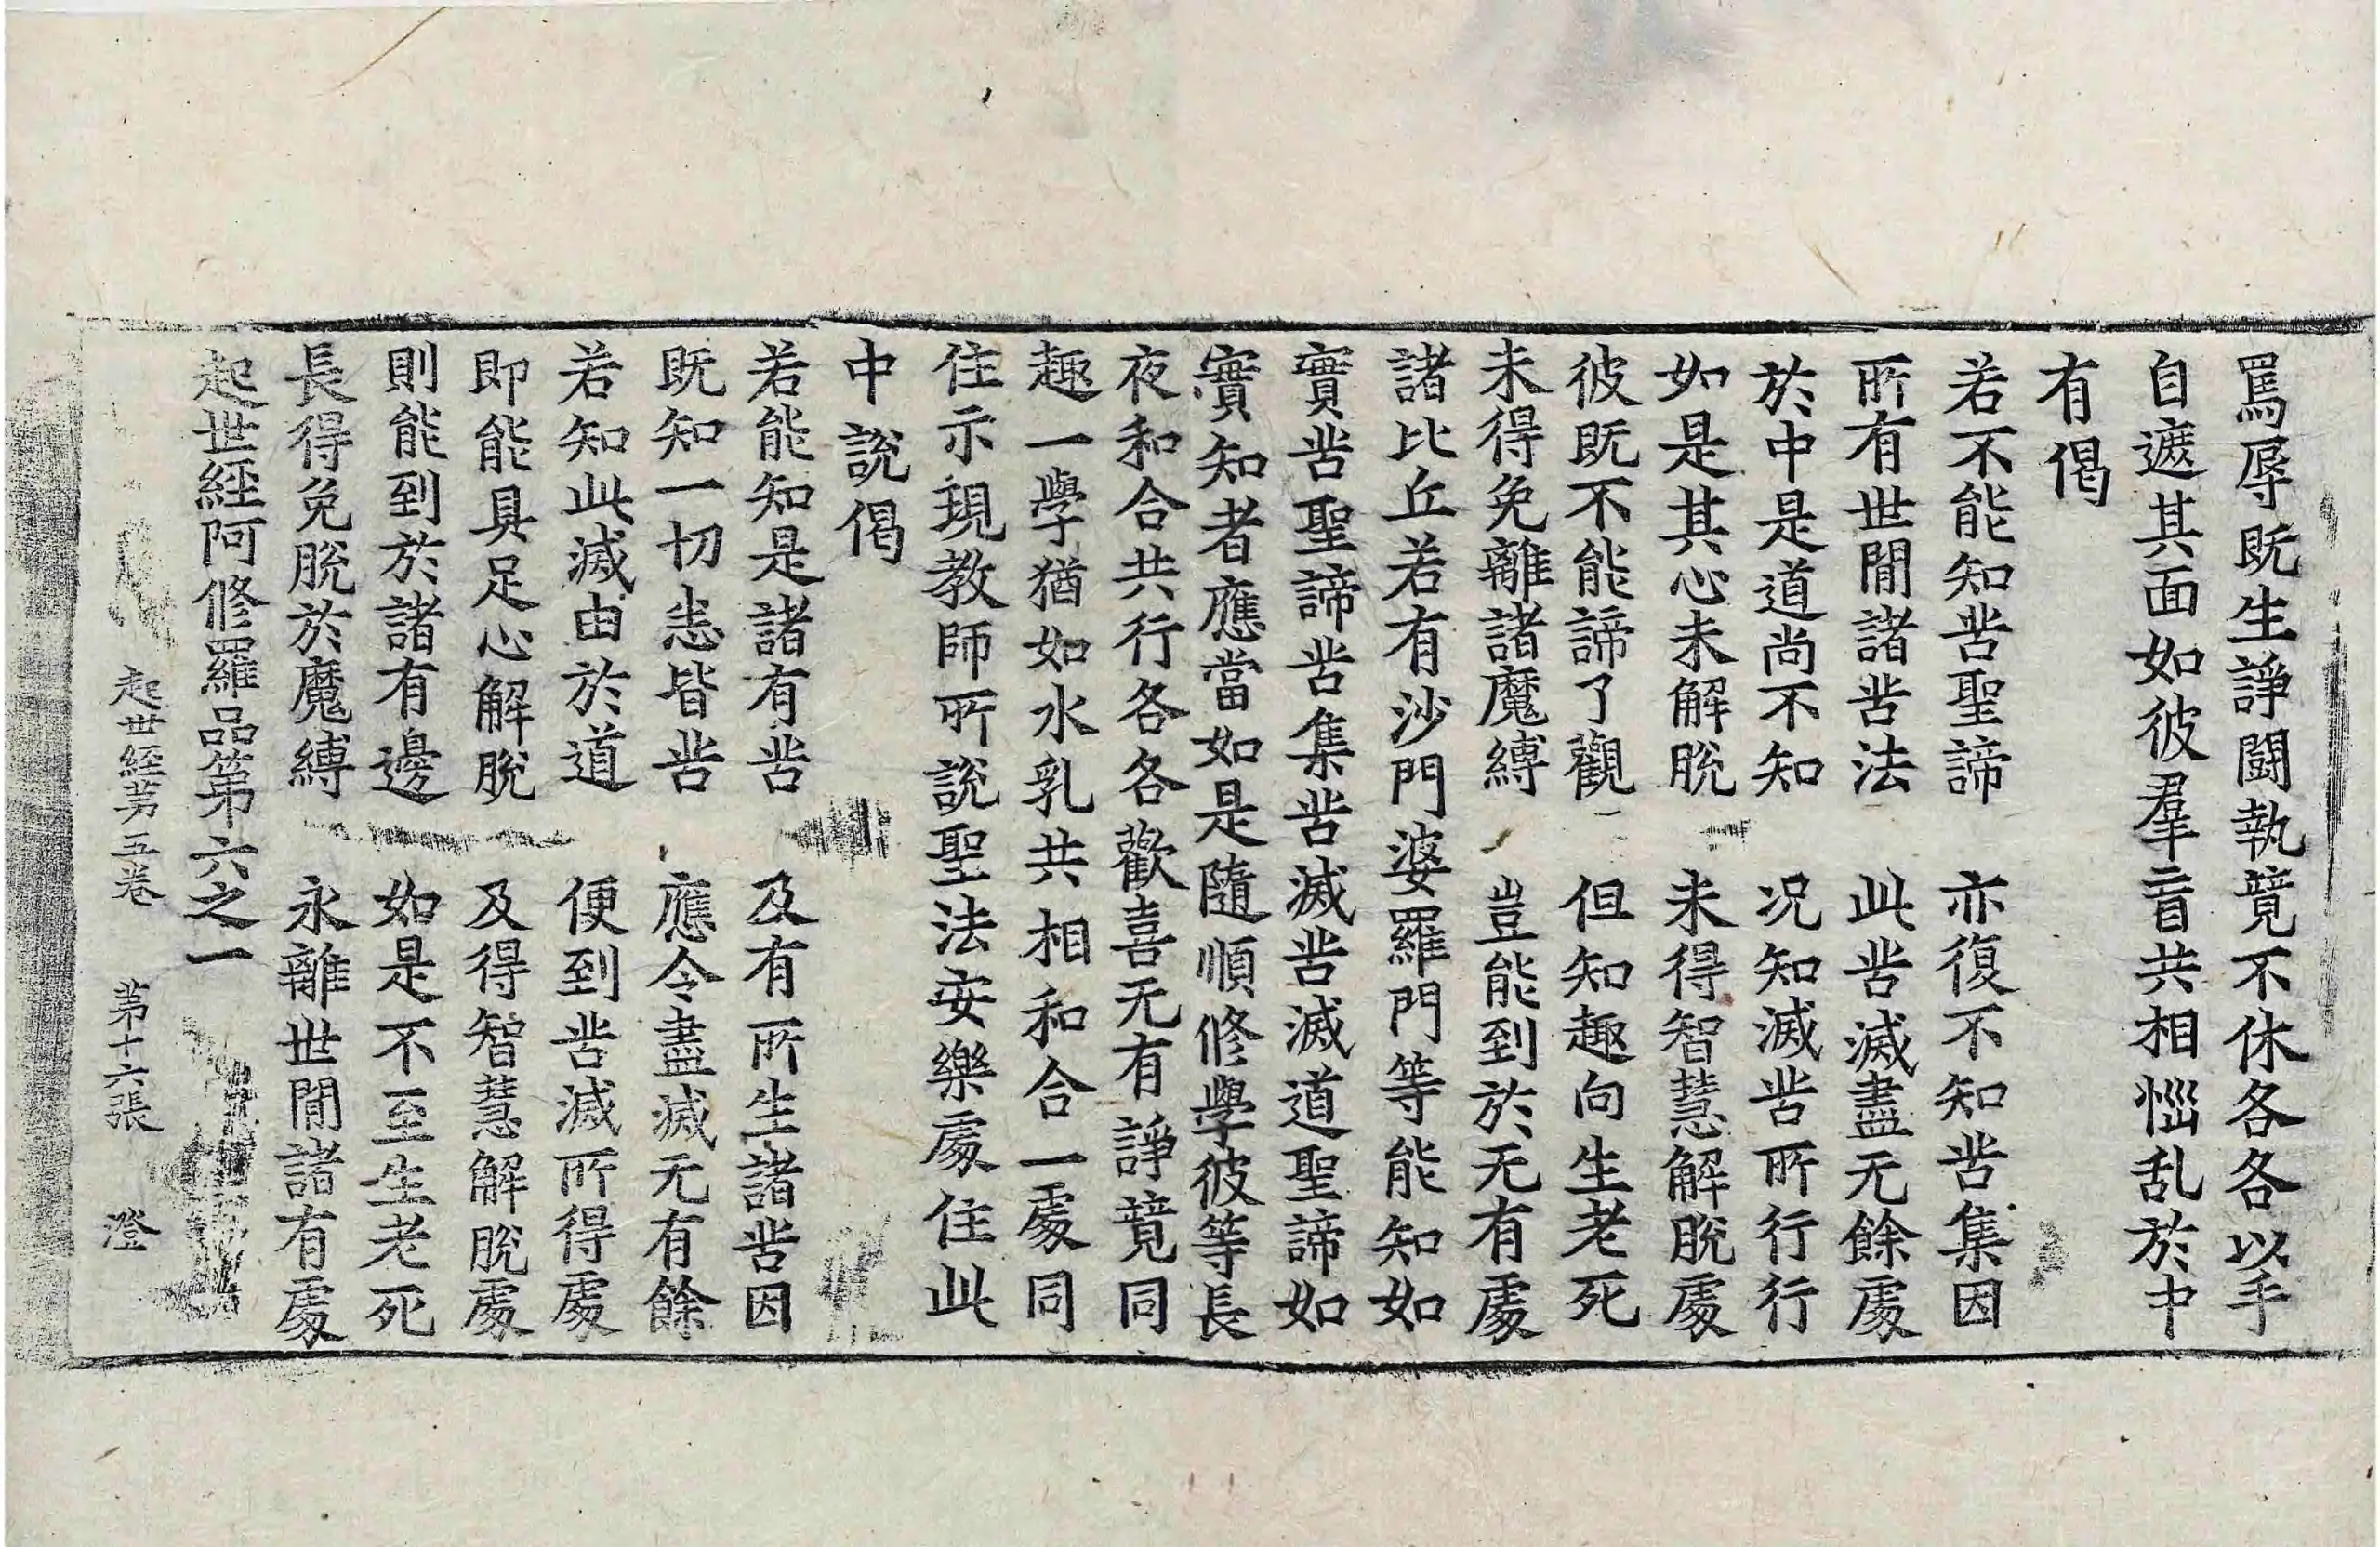 罵辱既生諍鬪執竟不休各各以手
自遮其面如彼羣盲共相惱乱於中
有偈
若不能知苦聖諦　亦復不知苦集因
所有世間諸苦法　此苦滅盡无餘處
於中是道尚不知　况知滅苦所行行
如是其心未解脫　未得智慧解脫處
彼既不能諦了觀　但知趣向生老死
未得免離諸魔縛　豈能到於无有處
諸比丘若有沙門婆羅門等能知如
實苦聖諦苦集苦滅苦滅道聖諦如
實知者應當如是隨順修學彼等長
夜和合共行各各歡喜无有諍竟同
趣一學猶如水乳共相和合一處同
住示現教師所說聖法安樂處住此
中說偈
若能知是諸有苦　及有所生諸苦因
既知一切悉皆苦　應令盡滅无有餘
若知此滅由於道　便到苦滅所得處
即能具足心解脫　及得智慧解脫處
則能到於諸有邊　如是不至生老死
長得免脫於魔縛　永離世間諸有處
起世經阿修羅品第六之一
起世經苐五卷　第十六張　澄